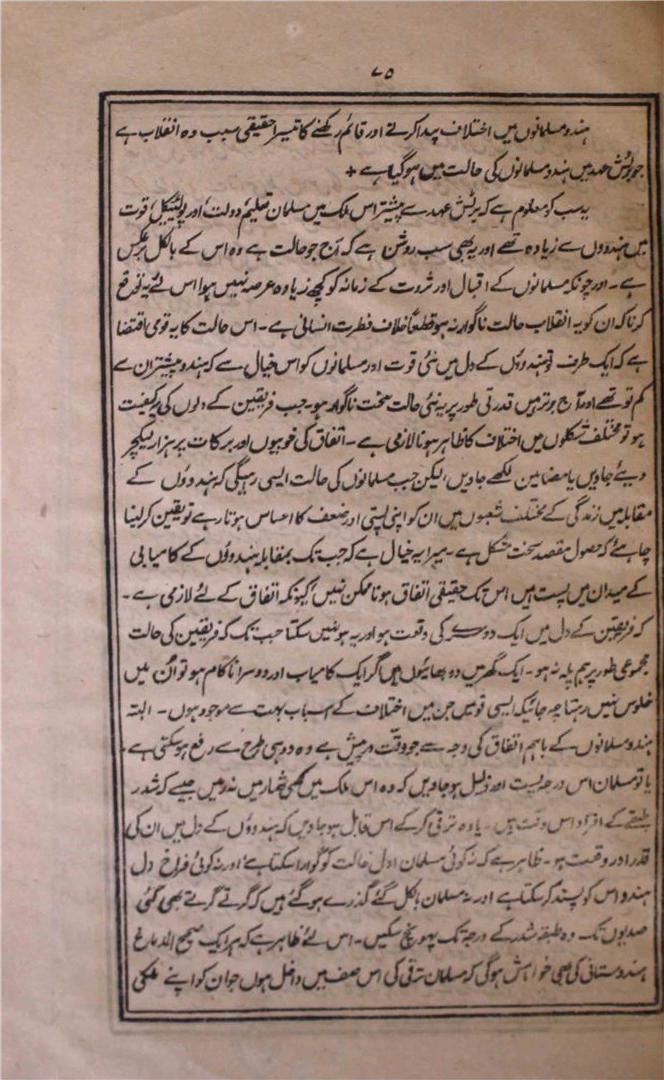 ۷۵
ہندو مسلمانوں میں اختلاف پیدا کرنے اور قائم رکھنے کا تیسرا حقیقی سبب وہ انقلاب ہے
جو برٹش عہد میں ہندو مسلمانوں کی حالت میں ہوگیا ہے +
یہ سب کو معلوم ہے کہ برٹش عہد سے پیشتر اس ملک میں مسلمان تعلیم، دولت، اور پولیٹیکل قوت
میں ہندوؤں سے زیادہ تھے اور یہ بھی سب روشن ہے کہ آج جو حالت ہے وہ اس کے بالکل برعکس
ہے ۔ اور چونکہ مسلمانوں کے اقبال اور ثروت کے زمانہ کو کچھ زیادہ عرصہ نہیں ہوا اس لئے یہ توقع
کرنا کہ ان کو یہ انقلاب حالت ناگوار نہ ہو قطعاً خلاف فطرت انسانی ہے ۔ اس حالت کا یہ قومی اقتضا
ہے کہ ایک طرف تو ہندوؤں کے دل میں نئی قوت اور مسلمانوں کو اس خیال سے کہ ہندو پیشتر ان سے
کم تو تھے اور آج برتر ہیں قدرتی طور پر یہ نئی حالت سخت ناگوار ہو ۔ جب فریقین کے دلوں کی یہ کیفیت
ہو تو مختلف شکلوں میں اختلاف کا ظاہر ہونا لازمی ہے ۔ اتفاق کی خوبیوں اور برکات پر ہزار لیکچر
دیئے جاویں یا مضامین لکھے جاویں لیکن جب مسلمانوں کی حالت ایسی رہیگی کہ ہندوؤں کے
مقابلہ میں زندگی کے مختلف شعبوں میں ان کو اپنی پستی اور ضعف کا احساس ہوتا رہے تو یقین کرلینا
چاہئے کہ حصول مقصد سخت مشکل ہے ۔ میرا یہ خیال ہے کہ جب تک بمقابلہ ہندوؤں کے کامیابی
کے میدان میں پست ہیں اس تک حقیقی اتفاق ہونا ممکن نہیں کیونکہ اتفاق کے لئے لازمی ہے ۔
کہ فریقین کے دل میں ایک دوسرے کی وقعت ہو اور یہ ہو نہیں سکتا جب تک کہ فریقین کی حالت
مجموعی طور پر ہم پلہ نہ ہو ۔ ایک گھر میں دو بھائیوں میں اگر ایک کامیاب اور دوسرا ناکام ہو تو ان میں
خلوص نہیں رہتا چہ جائیکہ ایسی قومیں جن میں اختلاف کے اسباب بہت سے موجود ہوں ۔ البتہ
ہندو مسلمانوں کے باہم اتفاق کی وجہ سے جو دقت درپیش ہے وہ دو ہی طرح سے رفع ہوسکتی ہے ۔
یا تو مسلمان اس درجہ پست اور ذلیل ہوجاویں کہ وہ اس ملک میں کسی شمار میں نہ رہیں جیسے کہ شدر
طبقے کے افراد اس وقت ہیں ۔ یا وہ ترقی کرکے اس قابل ہوجاویں کہ ہندوؤں کے دل میں ان کی
قدر اور وقعت ہو ۔ ظاہر ہے کہ نہ کوئی مسلمان اول حالت کو گوارا سکتا ہے اور نہ کوئی فراخ دل
ہندو اس کو پسند کرسکتا ہے اور نہ مسلمان بالکل گئے گذرے ہوگئے ہیں کہ گرتے گرتے بھی کئی
صدیوں تک ۔ وہ طبقہ شدر کے درجہ تک پہونچ سکیں ۔ اس لئے ظاہر ہے کہ ہر ایک صحیح الدماغ
ہندوستانی کی یہی خواہش ہوگی کہ مسلمان ترقی کی اس صف میں داخل ہوں جو ان کو اپنے ملکی